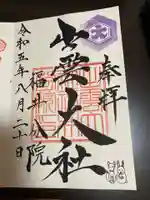 奉拝
出雲大社
福井分院
令和五年八月二十日